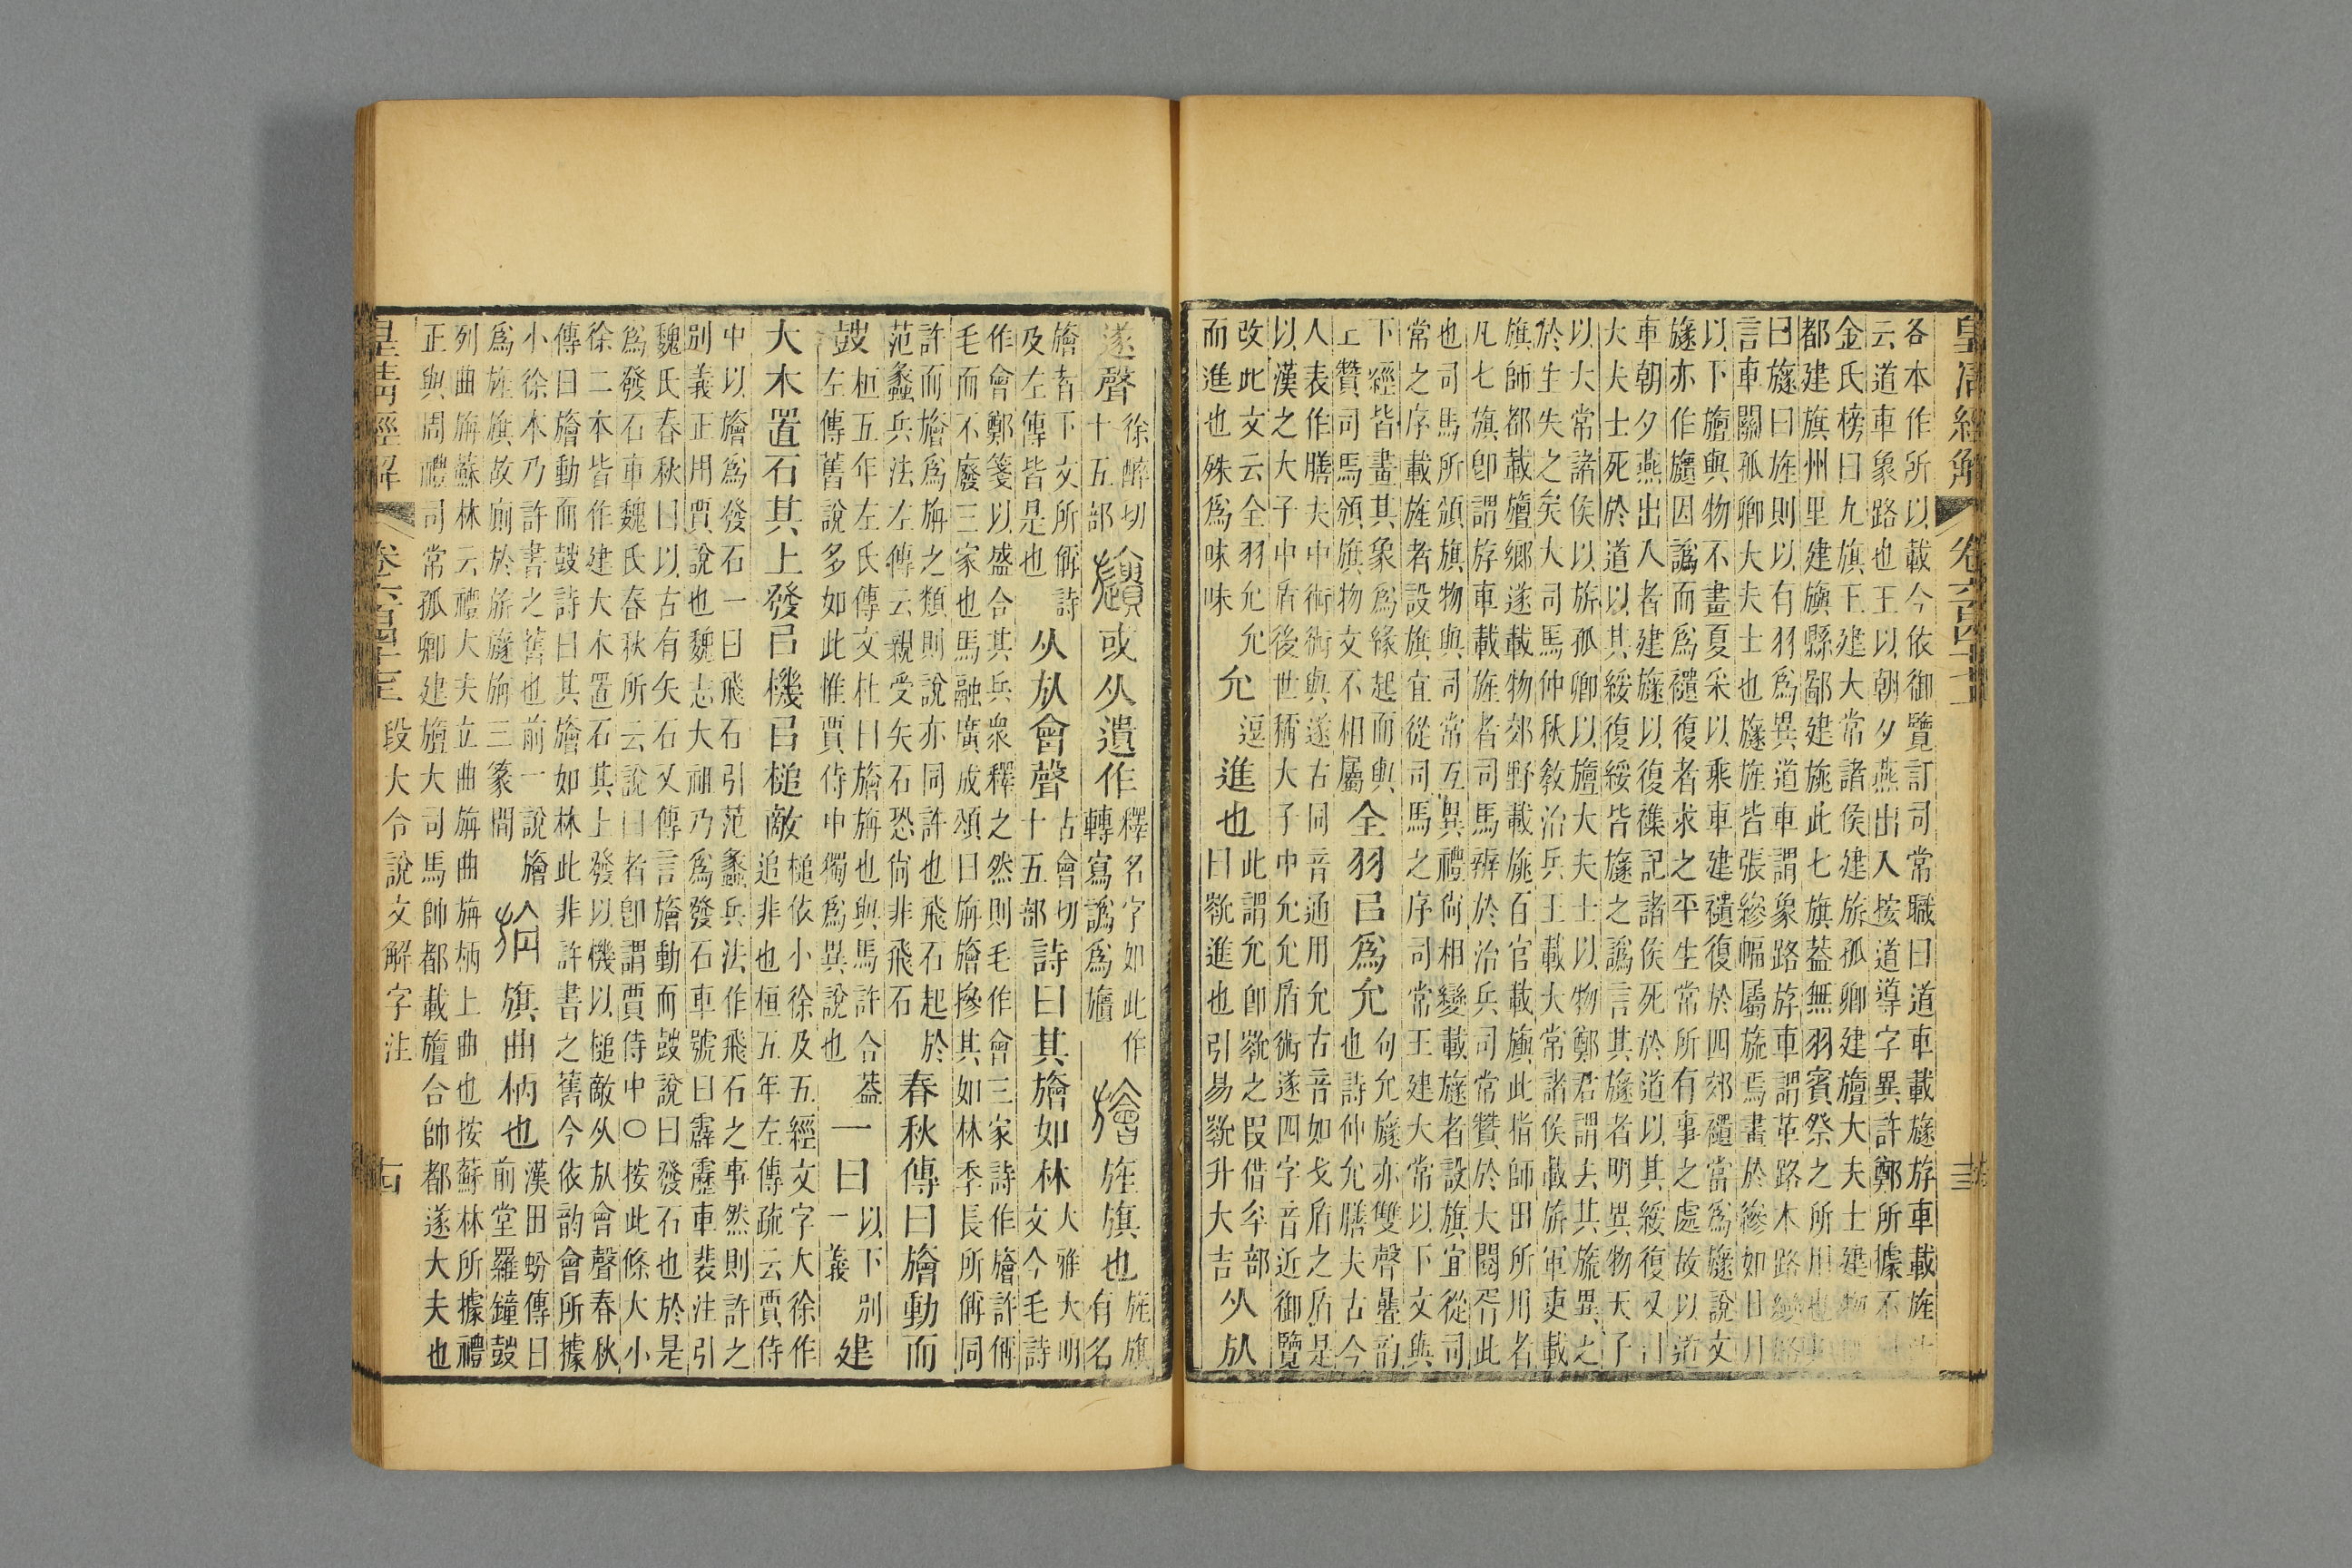 皇清經解 卷六百四十七
各本作所以載今依御覽訂司常職曰道車載旞斿車載旌
云道車象路也王以朝夕燕出入按道導字異許鄭所據不
金氏榜曰九旗王建大常諸侯建旂孤卿建旜大夫士建物
都建旗州里建旟縣鄙建旐此七旗葢無羽賓祭之所用也
曰旞曰旌則以有羽爲異道車謂象路斿車謂革路木路
言車關孤卿大夫士也旞旌皆張縿幅屬旒焉畫於縿如日月
以下旜與物不畫夏采以乘車建䙡復於四郊䙡當爲旞說文
旞亦作䍁因譌而爲䙡復者求之平生常所有事之處故以道
車朝夕燕出入者建旞以復襍記諸侯死於道以其綏復又曰
大夫士死於道以其綏復綏皆旞之譌言其旞者明異物天子
以大常諸侯以旂孤卿以旜大夫士以物鄭君謂去其旒異之
於生失之矣大司馬仲秋敎治兵王載大常諸侯載旂軍吏載
旗師都載旜鄉遂載物郊野載旐百官載旟此指師田所用者
凡七旗卽謂斿車載旌者司馬辨於治兵司常贊於大閱胥此
也司馬所頒旗物與司常互異禮尙相變載旞者設旗宜從司
常之序載旌者設旗宜從司馬之序司常王建大常以下文與
下經皆畫其象爲緣起而與
上贊司馬頒旗物文不相屬
全羽㠯爲允
句允旞亦雙聲曡韵
也詩仲允膳夫古今
人表作膳夫中術術與遂古同音通用允古音如戈盾之盾是
以漢之大子中盾後世稱大子中允允盾術遂四字音近御覽
改此文云全羽允允
而進也殊爲味味
允
逗
進也
此謂允卽㽙之叚借夲部
曰㽙進也引易㽙升大吉
从㫃
遂聲
徐醉切
十五部
䍁
或从遺作
釋名字如此作
轉寫譌爲旜
旝
旌旗也
旌旗
有名
旝者下文所偁詩
及左傳皆是也
从㫃會聲
古會切
十五部
詩曰其旝如林
大雅大明
文今毛詩
作會鄭箋以盛合其兵衆釋之然則毛作會三家詩作旝許偁
毛而不廢三家也馬融廣成頌曰旃旝摻其如林季長所偁同
許而旝爲旃之類則說亦同許也飛石起於
范蠡兵法左傳云親受矢石恐尙非飛石
春秋傳曰旝動而
鼓
桓五年左氏傳文杜曰旝旃也與馬許合葢
左傳舊說多如此惟賈侍中獨爲異說也
一曰
以下別
一義
建
大木置石其上發㠯機㠯槌敵
槌依小徐及五經文字大徐作
追非也桓五年左傳疏云賈侍
中以旝爲發石一曰飛石引范蠡兵法作飛石之事然則許之
別義正用賈說也魏志大祖乃爲發石車號曰霹靂車裴注引
魏氏春秋曰以古有矢石又傳言旝動而鼓說曰發石也於是
爲發石車魏氏春秋所云說曰者卽謂賈侍中○按此條大小
徐二本皆作建大木置石其上發以機以槌敵从㫃會聲春秋
傳曰旝動而鼓詩曰其旝如林此非許書之舊今依韵會所據
小徐本乃許書之舊也前一說旝
爲旌旗故廁於旂旞旃三篆間
旃
旗曲柄也
漢田蚡傳曰
前堂羅鐘鼓
列曲旃蘇林云禮大夫立曲旃曲旃柄上曲也按蘇林所據禮
正與周禮司常孤卿建旜大司馬帥都載旜合帥都遂大夫也
皇清經解 卷六百四十七 段大令說文解字注 十四